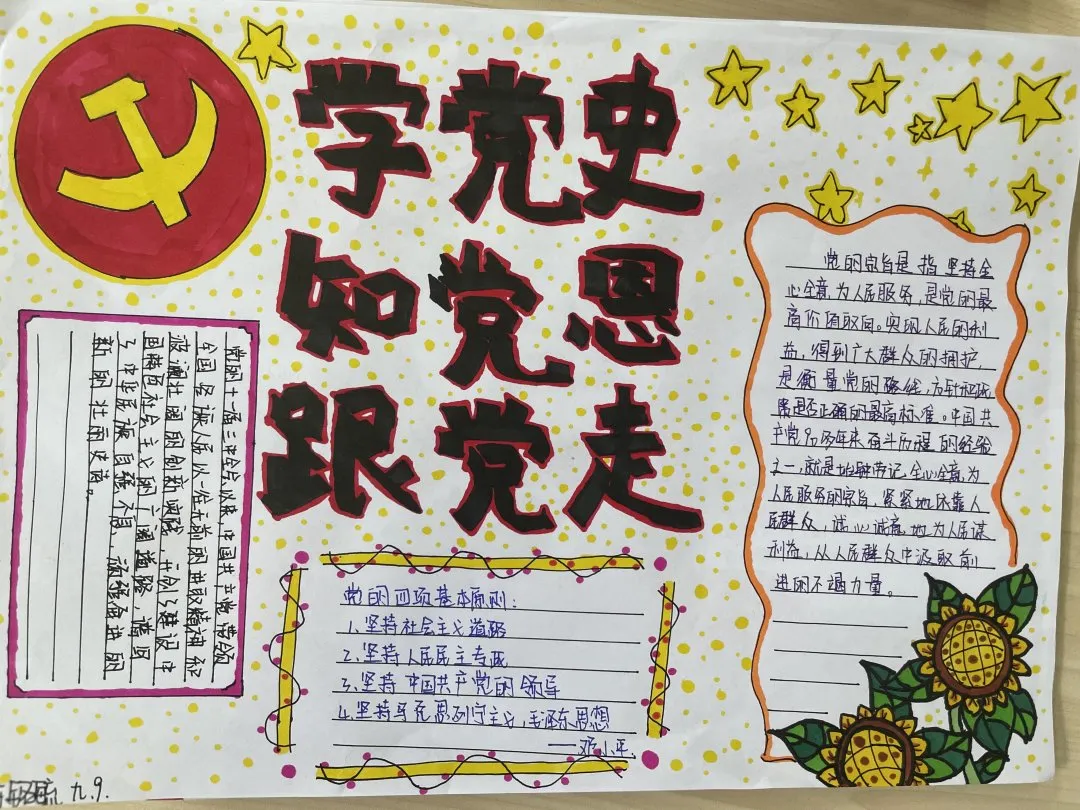 学党史
知党恩
跟党走
党的十一届三中全会以来,中国共产党带领
全国各族人民以一往无前的进取精神和
波澜壮阔的创新实践,开创了建设中
国特色社会主义的广阔道路,谱写
了中华民族自强不息、顽强奋进的
新的壮丽史诗。
党的四项基本原则:
1、坚持社会主义道路
2、坚持人民民主专政
3、坚持中国共产党的领导
4、坚持马克思列宁主义、毛泽东思想
——邓小平
党的宗旨是指坚持全
心全意为人民服务,是党的最
高价值取向。实现人民的利
益,得到广大群众的拥护,
是衡量党的路线、方针和政
策是否正确的最高标准。中国共
产党90多年来奋斗历程的经验
之一,就是始终牢记全心全意为
人民服务的宗旨,紧紧地依靠人
民群众,诚心诚意地为人民谋
利益,从人民群众中汲取前
进的不竭力量。
九.9.